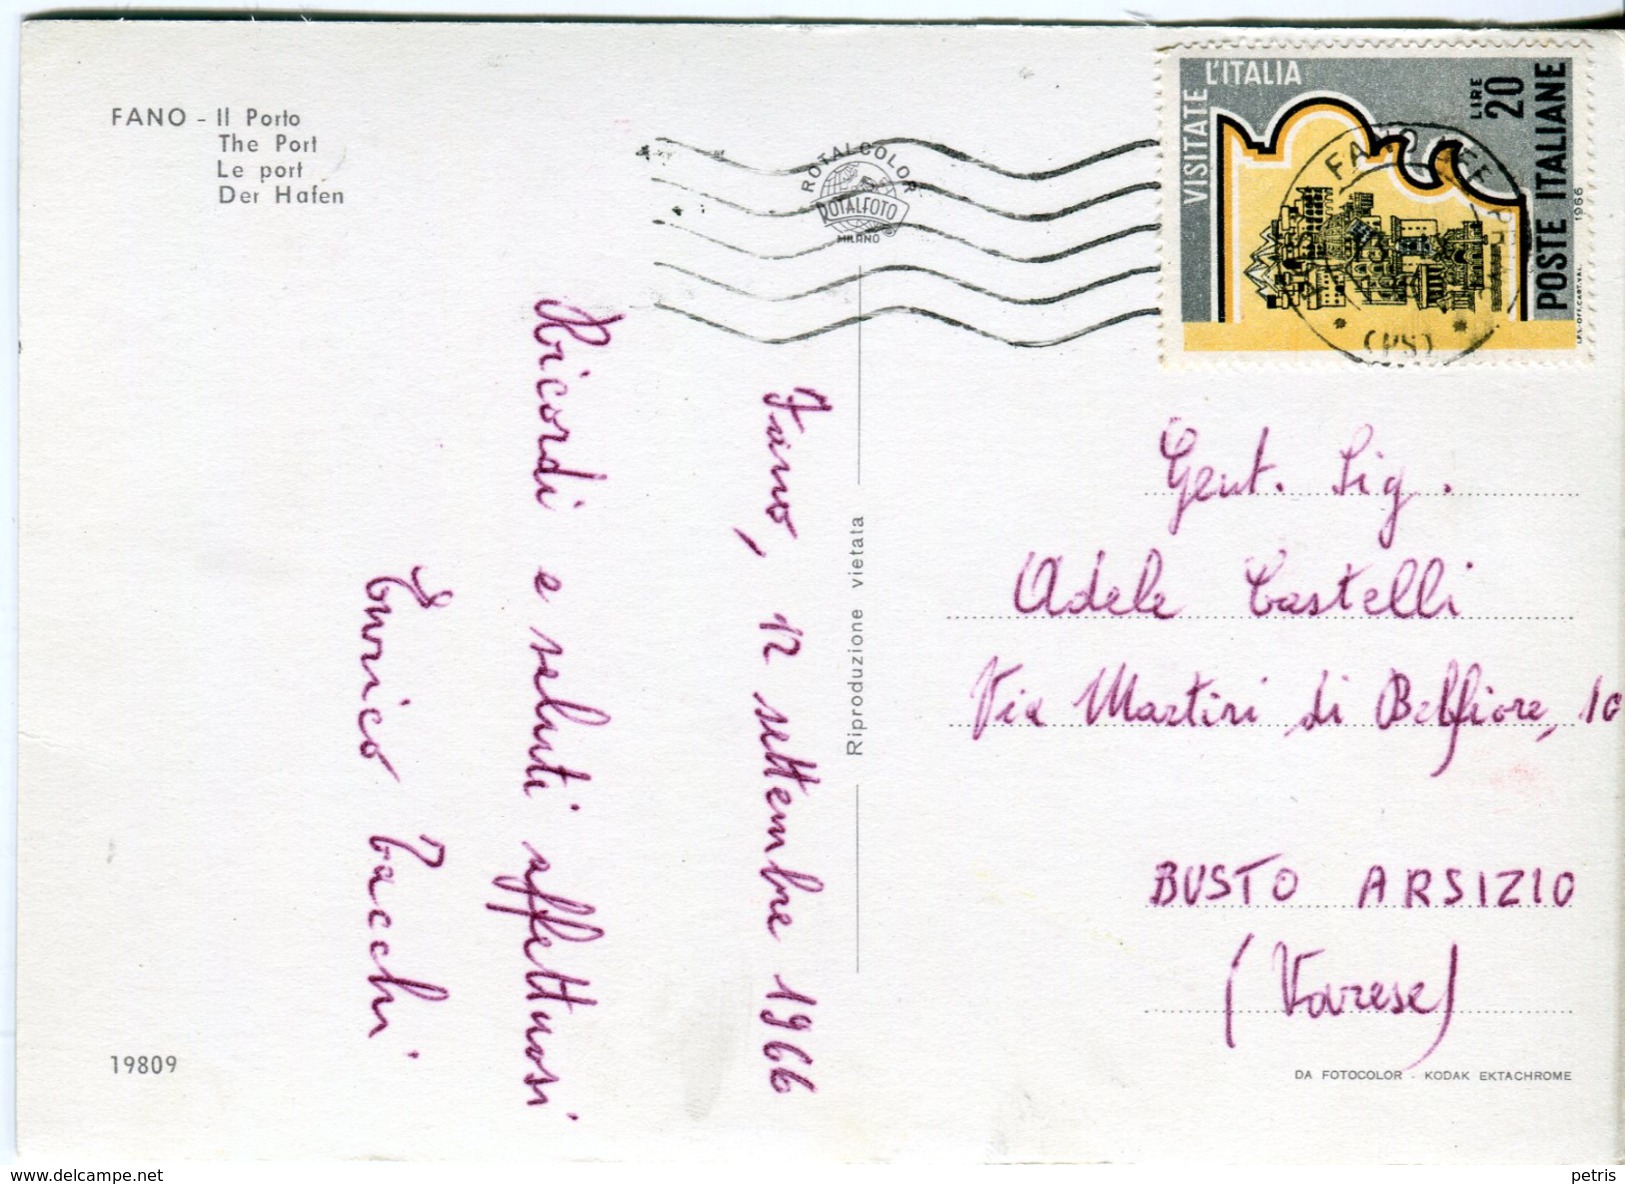 FANO - Il Porto
The Port
Le port
Der Hafen
ROTALCOLOR
ROTALFOTO
MILANO
VISITATE L'ITALIA
LIRE 20
POSTE ITALIANE
1966
(PS)
Fano, 12 settembre 1966
Ricordi e saluti affettuosi
Enrico Tacchi
Riproduzione vietata
Gent. Sig.
Adele Castelli
Via Martiri di Belfiore, 10
BUSTO ARSIZIO
(Varese)
19809
DA FOTOCOLOR - KODAK EKTACHROME
www.delcampe.net
petris